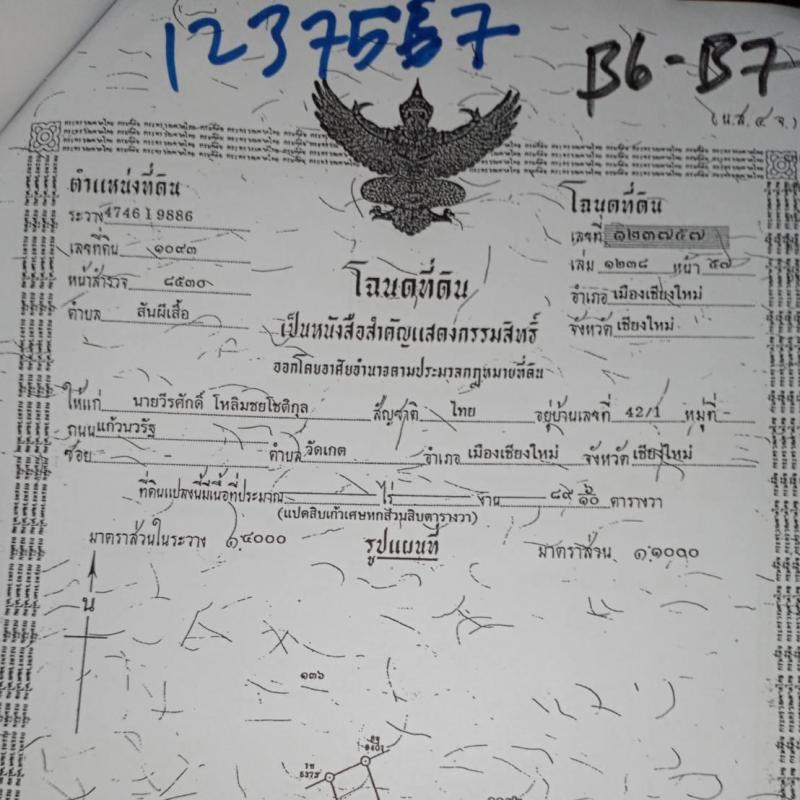 1237557
B6-B7
(น.ส.๔ จ.)
ตำแหน่งที่ดิน
ระวาง 4746 I 9886
เลขที่ดิน ๑๐๙๓
หน้าสำรวจ ๘๕๓๐
ตำบล สันผีเสื้อ
โฉนดที่ดิน
เลขที่ ๑๒๓๗๕๗
เล่ม ๑๒๓๘ หน้า ๕๗
อำเภอ เมืองเชียงใหม่
จังหวัด เชียงใหม่
โฉนดที่ดิน
เป็นหนังสือสำคัญแสดงกรรมสิทธิ์
ออกโดยอาศัยอำนาจตามประมวลกฎหมายที่ดิน
ให้แก่ นายวีรศักดิ์ โหลิมชยโชติกุล สัญชาติ ไทย อยู่บ้านเลขที่ 42/1 หมู่ที่ -
ถนน แก้วนวรัฐ
ซอย - ตำบล วัดเกต อำเภอ เมืองเชียงใหม่ จังหวัด เชียงใหม่
ที่ดินแปลงนี้มีเนื้อที่ประมาณ ไร่ งาน ๘๙ ๖/๑๐ ตารางวา
(แปดสิบเก้าเศษหกส่วนสิบตารางวา)
มาตราส่วนในระวาง ๑:๔๐๐๐ รูปแผนที่ มาตราส่วน ๑:๑๐๐๐
น
๑๓๖